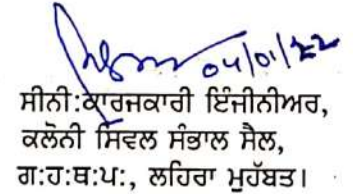 04/01/22
ਸੀਨੀ:ਕਾਰਜਕਾਰੀ ਇੰਜੀਨੀਅਰ,
ਕਲੋਨੀ ਸਿਵਲ ਸੰਭਾਲ ਸੈਲ,
ਗ:ਹ:ਥ:ਪ:, ਲਹਿਰਾ ਮੁਹੱਬਤ।